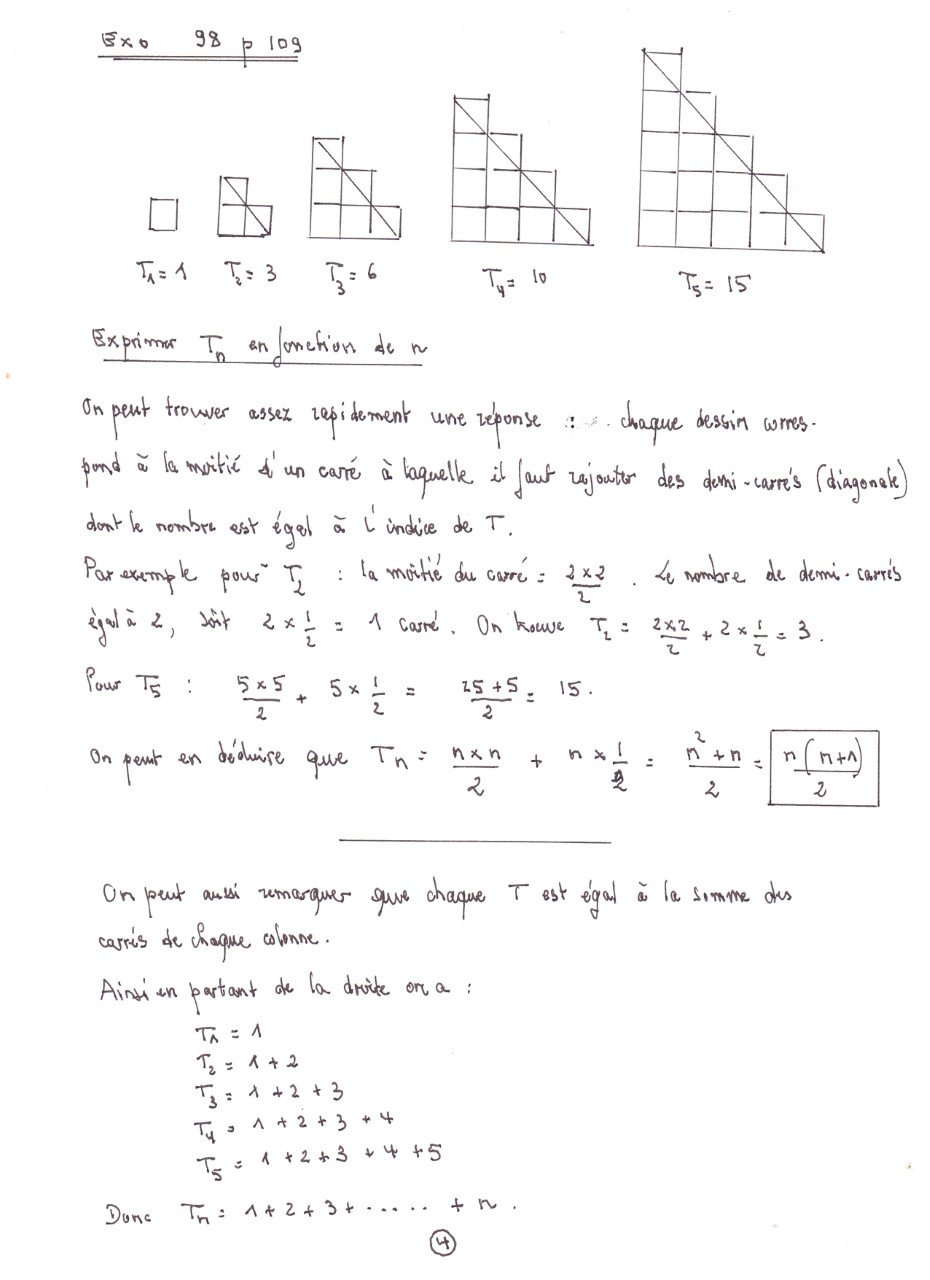 Exo 98 p 109
T₁ = 1 T₂ = 3 T₃ = 6 T₄ = 10 T₅ = 15
Exprimer Tₙ en fonction de n
On peut trouver assez rapidement une réponse : chaque dessin corres-
pond à la moitié d'un carré à laquelle il faut rajouter des demi-carrés (diagonale)
dont le nombre est égal à l'indice de T.
Par exemple pour T₂ : la moitié du carré = 2×2/2 . Le nombre de demi-carrés
égal à 2, soit 2 × 1/2 = 1 carré. On trouve T₂ = 2×2/2 + 2 × 1/2 = 3.
Pour T₅ : 5×5/2 + 5 × 1/2 = 25+5/2 = 15.
On peut en déduire que Tₙ = n×n/2 + n × 1/2 = n²+n/2 = n(n+1)/2
On peut aussi remarquer que chaque T est égal à la somme des
carrés de chaque colonne.
Ainsi en partant de la droite on a :
T₁ = 1
T₂ = 1 + 2
T₃ = 1 + 2 + 3
T₄ = 1 + 2 + 3 + 4
T₅ = 1 + 2 + 3 + 4 + 5
Donc Tₙ = 1 + 2 + 3 + ..... + n .
4